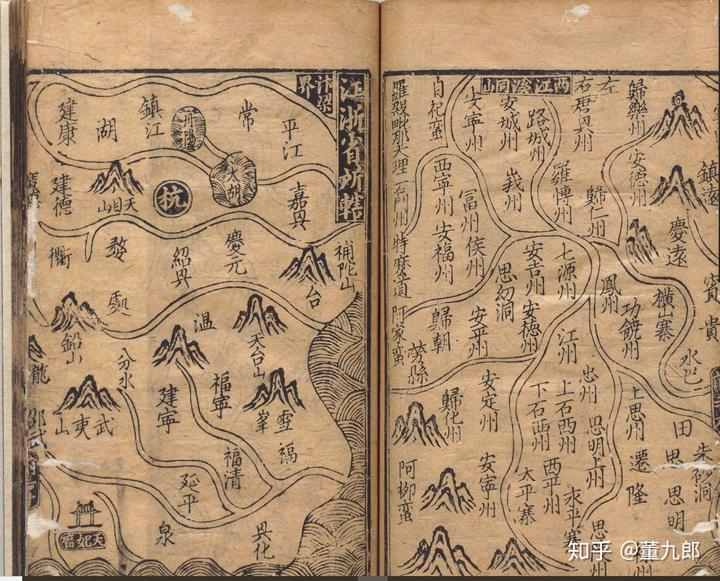 江浙省所轄
汴梁界
平江
常
鎮江
湖
建康
丹陽
大湖
杭
天目山
建德
嘉興
慶元
紹興
婺
衢
補陀山
台
處
溫
天台山
鉛山
分水
建寧
福寧
雪峯
武夷山
福
福清
延平
邵武
興化
泉
天妃宮
兩江溪洞
歸樂州
左
右君興州
路城州
安城州
女寧州
自杞蠻
羅殿毗那大理
石門州
特磨道
阿家蠻
西寧州
安福州
歸朝
勞縣
歸化州
阿柳蠻
莪州
冨州
侯州
安平州
安定州
安寧州
羅博州
歸仁州
安德州
鎮遠
慶遠
賓
貴
橫山寨
水巴
鳳州
功饒州
七源州
安吉州
思幼洞
安德州
江州
忠州
上石西州
下石西州
西平州
太平寨
永平寨
思明上州
上思州
遷隆
田
思
思明
朱砂洞
知乎 @董九郎